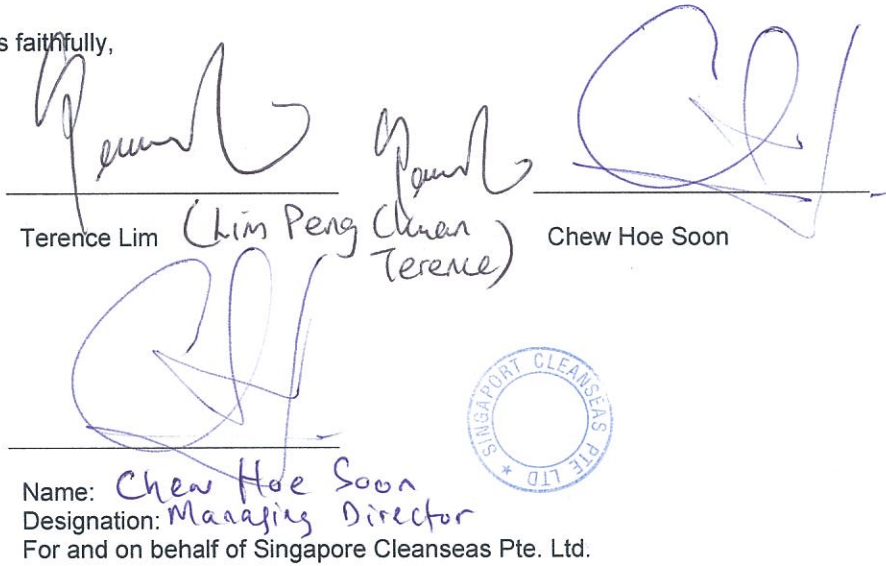 s faithfully,
Terence Lim (Lim Peng Chuan Terence)
Chew Hoe Soon
SINGAPORT CLEANSEAS PTE LTD *
Name: Chew Hoe Soon
Designation: Managing Director
For and on behalf of Singapore Cleanseas Pte. Ltd.